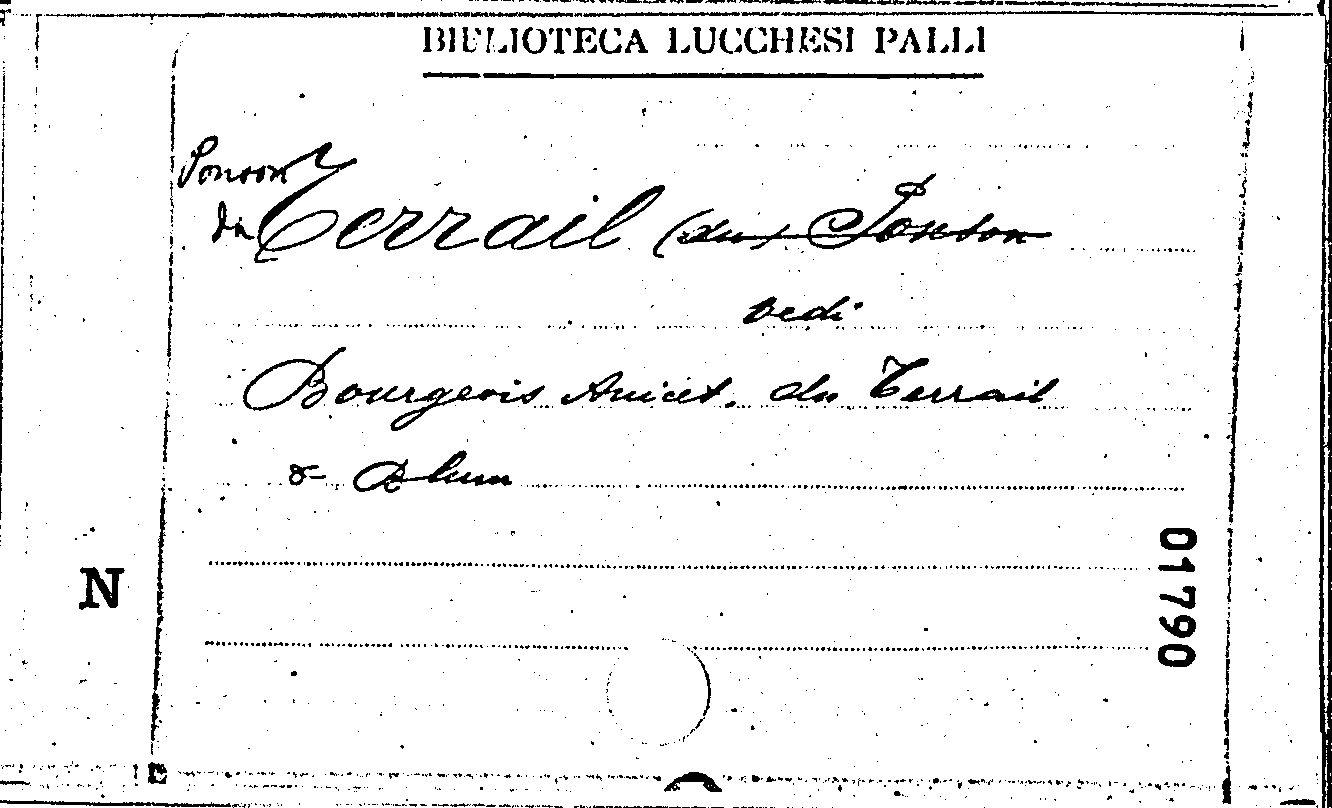 BIBLIOTECA LUCCHESI PALLI
Ponson
du Terrail (du) Ponson
vedi
Bourgeois Anicet. du Terrail
& Blum
N
01790